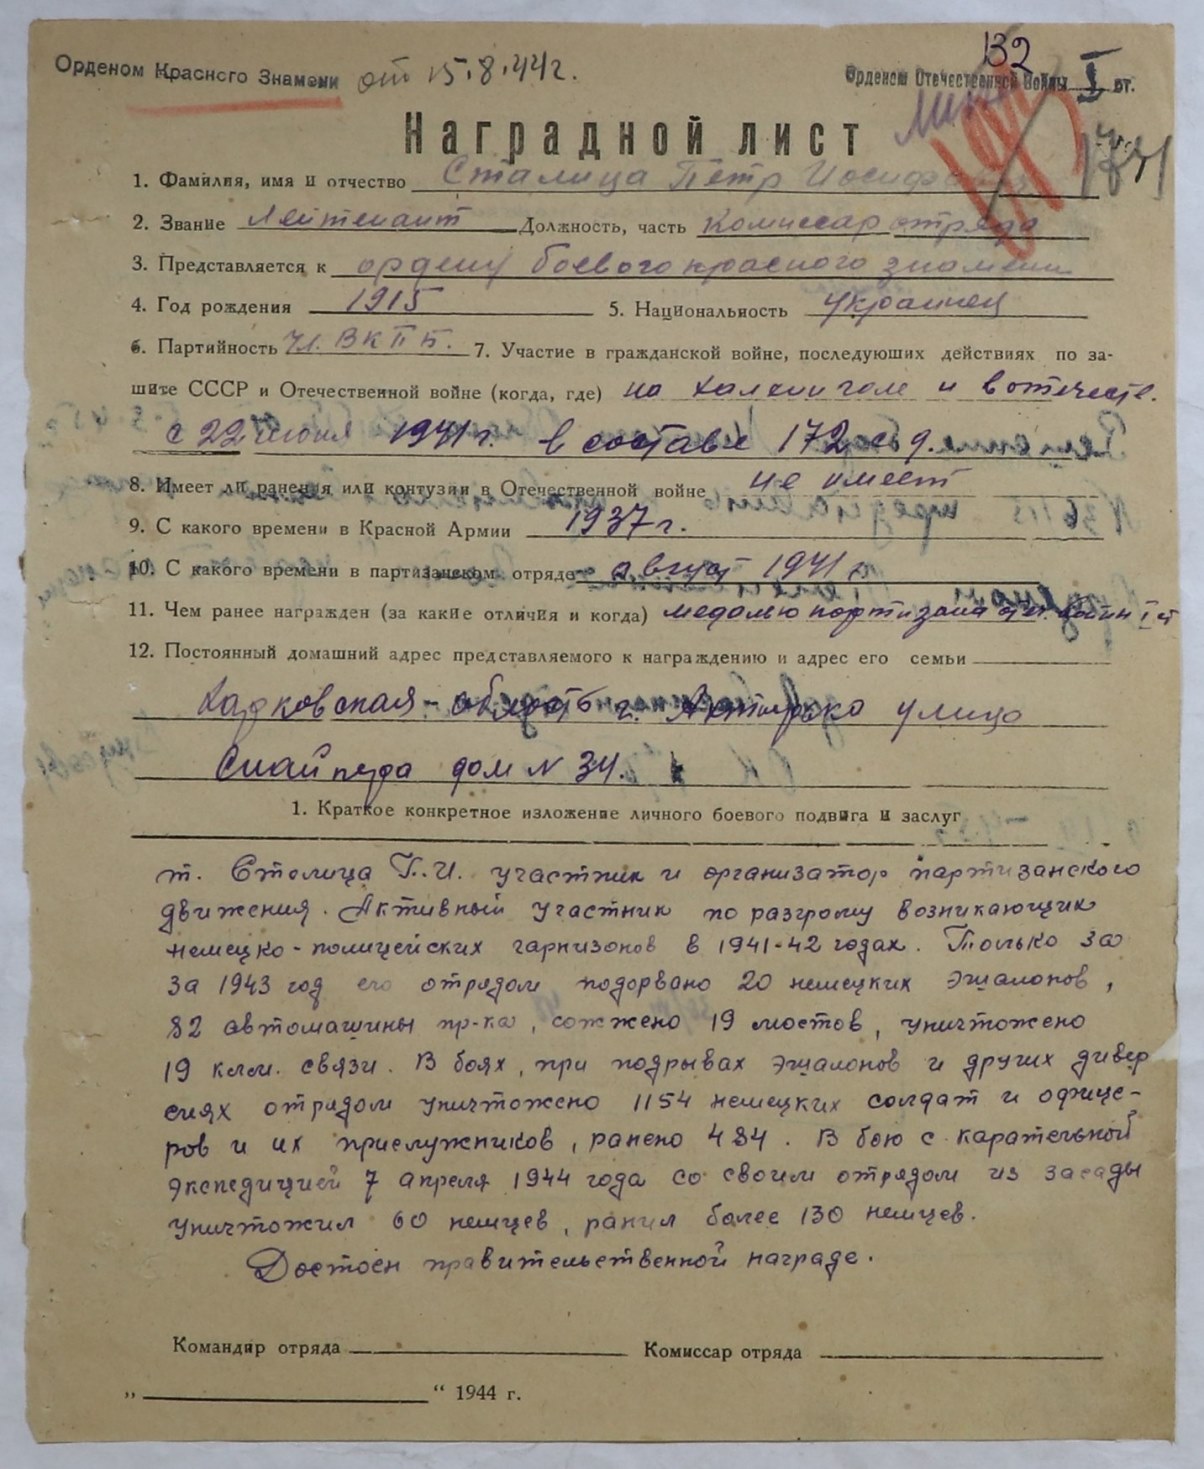 132
Орденом Красного Знамени от 15.8.44 г.
Орденом Отечественной Войны I ст.
Наградной лист
1. Фамилия, имя и отчество Сталица Пётр Иосифович
2. Звание Лейтенант Должность, часть Комиссар отряда
3. Представляется к ордену боевого красного знамени
4. Год рождения 1915 5. Национальность Украинец
6. Партийность Чл. ВКПБ. 7. Участие в гражданской войне, последующих действиях по за-
щите СССР и Отечественной войне (когда, где) на Халхинголе и в отечеств.
с 22 июня 1941 г. в составе 172 с д.
8. Имеет ли ранения или контузии в Отечественной войне не имеет
9. С какого времени в Красной Армии 1937 г.
10. С какого времени в партизанском отряде август 1941 г.
11. Чем ранее награжден (за какие отличия и когда) медалью партизана от. войны I ст
12. Постоянный домашний адрес представляемого к награждению и адрес его семьи
Харковская - область г. Ахтырка улица
дом N 34.
1. Краткое конкретное изложение личного боевого подвига и заслуг
т. Столица П.И. участник и организатор партизанского
движения. Активный участник по разгрому возникающих
немецко-полицейских гарнизонов в 1941-42 годах. Только за
за 1943 год его отрядом подорвано 20 немецких эшалонов,
82 автомашины пр-ка, сожжено 19 мостов, уничтожено
19 клм. связи. В боях, при подрывах эшалонов и других дивер
сиях отрядом уничтожено 1154 немецких солдат и офице-
ров и их прислужников, ранено 484. В бою с карательной
экспедицией 7 апреля 1944 года со своим отрядом из засады
уничтожил 60 немцев, ранил более 130 немцев.
Достоен правительственной награде.
Командир отряда Комиссар отряда
„ “ 1944 г.